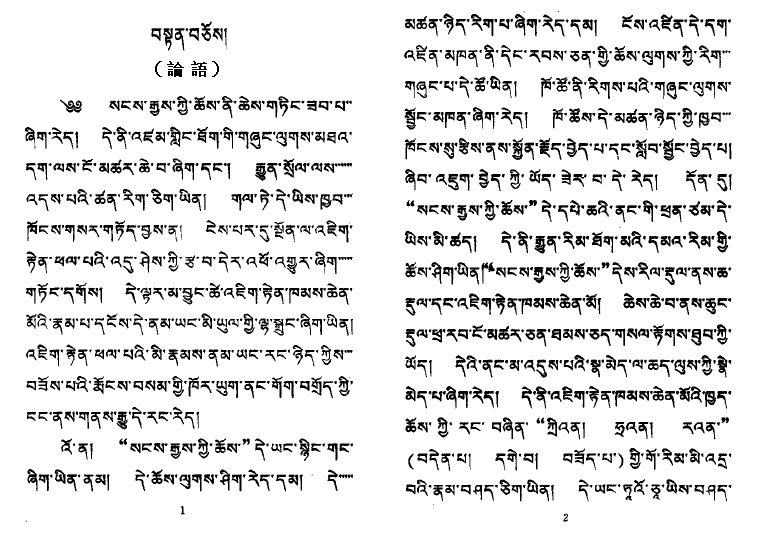 བསྟན་བཅོས།
（論語）
༄༅ སངས་རྒྱས་ཀྱི་ཆོས་ནི་ཆེས་གཏིང་ཟབ་པ་
ཞིག་རེད། དེ་ནི་འཛམ་གླིང་ཐོག་གི་གཞུང་ལུགས་མཐའ་
དག་ལས་ངོ་མཚར་ཆེ་བ་ཞིག་དང་། རྒྱུན་སྲོལ་ལས་
འདས་པའི་ཚན་རིག་ཅིག་ཡིན། གལ་ཏེ་དེ་ཡིས་ཁྱབ་
ཁོངས་གསར་གཏོད་བྱས་ན། ངེས་པར་དུ་སྔོན་ལ་འཇིག་
རྟེན་ཕལ་པའི་འདུ་ཤེས་ཀྱི་རྩ་བ་དེར་འཕོ་འགྱུར་ཞིག་
གཏོང་དགོས། དེ་ལྟར་མ་བྱུང་ཚེ་འཇིག་རྟེན་ཁམས་ཆེན་
མོའི་རྣམ་པ་དངོས་དེ་ནམ་ཡང་མི་ཡུལ་གྱི་ལྷ་སྒྲུང་ཞིག་ཡིན།
འཇིག་རྟེན་ཕལ་པའི་མི་རྣམས་ནམ་ཡང་རང་ཉིད་ཀྱིས་
བཟོས་པའི་རྨོངས་བསམ་གྱི་ཁོར་ཡུག་ནང་གོག་བགྲོད་ཀྱི་
ངང་ནས་གནས་རྒྱུ་དེ་རང་རེད།
འོ་ན། “སངས་རྒྱས་ཀྱི་ཆོས་”དེ་ཡང་སྙིང་གང་
ཞིག་ཡིན་ནམ། དེ་ཆོས་ལུགས་ཤིག་རེད་དམ། དེ་
1
མཚན་ཉིད་རིག་པ་ཞིག་རེད་དམ། ངོས་འཛིན་དེ་དག་
འཛིན་མཁན་ནི་དེང་རབས་ཅན་གྱི་ཆོས་ལུགས་ཀྱི་རིག་
གཞུང་པ་དེ་ཚོ་ཡིན། ཁོ་ཚོ་ནི་རིགས་པའི་གཞུང་ལུགས་
སྦྱོང་མཁན་ཞིག་རེད། ཁོ་ཚོས་དེ་མཚན་ཉིད་ཀྱི་ཁྱབ་
ཁོངས་སུ་རྩིས་ནས་སྐྱོན་རྗོད་བྱེད་པ་དང་སློབ་སྦྱོང་བྱེད་པ།
ཞིབ་འཇུག་བྱེད་ཀྱི་ཡོད་ཟེར་བ་དེ་རེད། དོན་དུ།
“སངས་རྒྱས་ཀྱི་ཆོས་”དེ་དཔེ་ཆའི་ནང་གི་ཕྲན་ཙམ་དེ་
ཡིས་མི་ཚད། དེ་ནི་རྒྱུན་རིམ་ཐོག་མའི་དམའ་རིམ་གྱི་
ཆོས་ཤིག་ཡིན། “སངས་རྒྱས་ཀྱི་ཆོས་”དེས་རིལ་རྡུལ་ནས་ཆ་
རྡུལ་དང་འཇིག་རྟེན་ཁམས་ཆེན་མོ། ཆེས་ཆེ་བ་ནས་ཆུང་
རྡུལ་ཕྲ་རབ་ངོ་མཚར་ཅན་ཐམས་ཅད་གསལ་རྟོགས་ཐུབ་ཀྱི་
ཡོད། དེའི་ནང་མ་འདུས་པའི་སྣ་མེད་ལ་ཆད་ལུས་ཀྱི་སྣེ་
མེད་པ་ཞིག་རེད། དེ་ནི་འཇིག་རྟེན་ཁམས་ཆེན་མོའི་ཁྱད་
ཆོས་ཀྱི་རང་བཞིན་“ཀྲིའན། ཧྲའན། རའན།”
(བདེན་པ། དགེ་བ། བཟོད་པ་)གྱི་གོ་རིམ་མི་འདྲ་
བའི་རྣམ་བཤད་ཅིག་ཡིན། དེ་ཡང་ཏཱའོ་ཅཱ་ཡིས་བཤད་
2